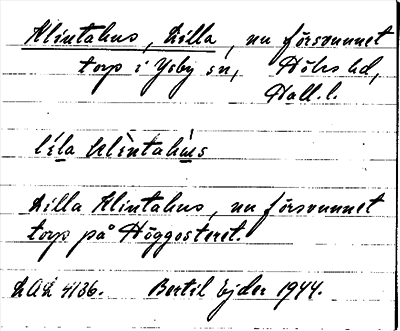 Klintahus, Lilla, nu försvunnet
torp i Ysby sn, Höks hd,
Hall. l.
lila klintahus
Lilla Klintahus, nu försvunnet
torp på Höggosteret.
LAL 4136. Bertil Ejder 1944.